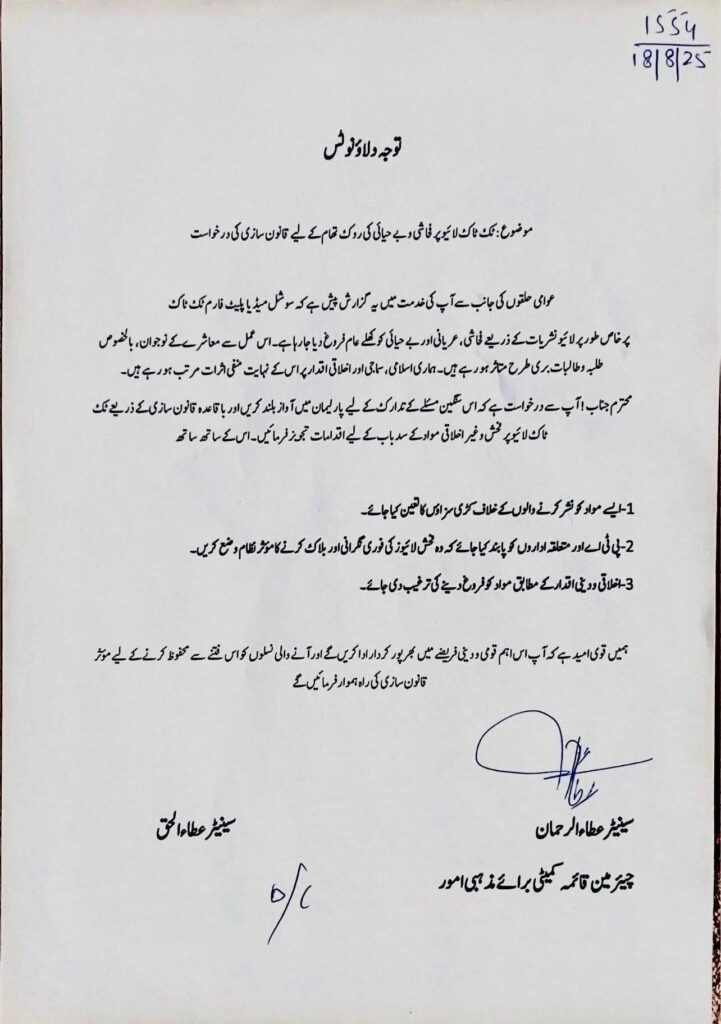 1554
18/8/25
توجہ دلاؤ نوٹس
موضوع: ٹک ٹاک لائیو پر فحاشی و بے حیائی کی روک تھام کے لیے قانون سازی کی درخواست
عوامی حلقوں کی جانب سے آپ کی خدمت میں یہ گزارش پیش ہے کہ سوشل میڈیا پلیٹ فارم ٹک ٹاک
پر خاص طور پر لائیو نشریات کے ذریعے فحاشی، عریانی اور بے حیائی کو کھلے عام فروغ دیا جا رہا ہے۔ اس عمل سے معاشرے کے نوجوان، بالخصوص
طلبہ و طالبات بری طرح متاثر ہو رہے ہیں۔ ہماری اسلامی، سماجی اور اخلاقی اقدار پر اس کے نہایت منفی اثرات مرتب ہو رہے ہیں۔
محترم جناب! آپ سے درخواست ہے کہ اس سنگین مسئلے کے تدارک کے لیے پارلیمان میں آواز بلند کریں اور باقاعدہ قانون سازی کے ذریعے ٹک
ٹاک لائیو پر فحش و غیر اخلاقی مواد کے سدباب کے لیے اقدامات تجویز فرمائیں۔ اس کے ساتھ ساتھ
1-ایسے مواد کو نشر کرنے والوں کے خلاف کڑی سزاؤں کا تعین کیا جائے۔
2-پی ٹی اے اور متعلقہ اداروں کو پابند کیا جائے کہ وہ فحش لائیوز کی فوری نگرانی اور بلاک کرنے کا مؤثر نظام وضع کریں۔
3-اخلاقی و دینی اقدار کے مطابق مواد کو فروغ دینے کی ترغیب دی جائے۔
ہمیں قوی امید ہے کہ آپ اس اہم قومی و دینی فریضے میں بھرپور کردار ادا کریں گے اور آنے والی نسلوں کو اس فتنے سے محفوظ کرنے کے لیے مؤثر
قانون سازی کی راہ ہموار فرمائیں گے
سینیٹر عطاء الرحمان
سینیٹر عطاء الحق
چیئرمین قائمہ کمیٹی برائے مذہبی امور
O/C